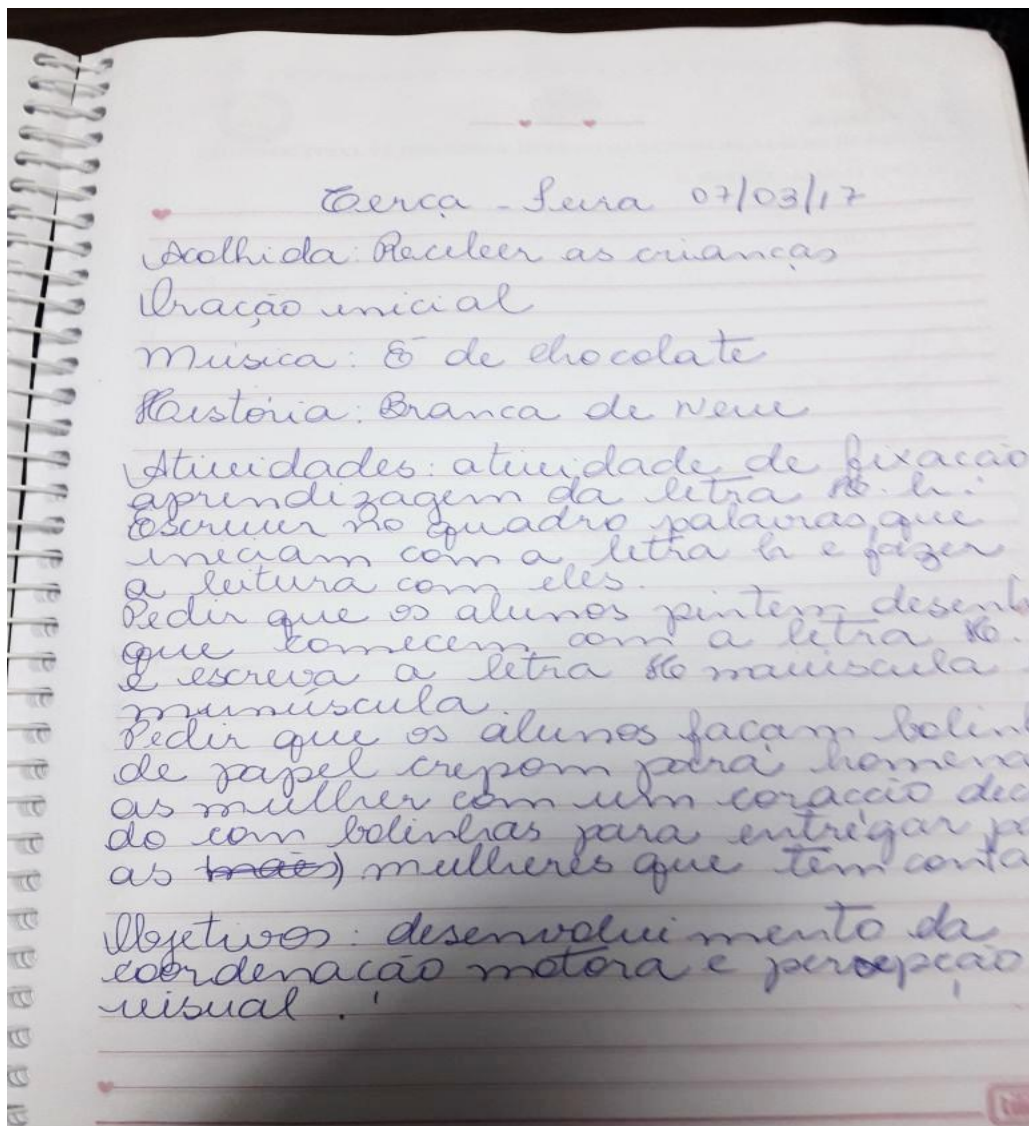 Terça - Feira 07/03/17
Acolhida: Receber as crianças
Oração inicial
Música: É de chocolate
História: Branca de Neve
Atividades: atividade de fixação
aprendizagem da letra H. h:
Escrever no quadro palavras que
iniciam com a letra h e fazer
a leitura com eles.
Pedir que os alunos pintem desenh
que comecem com a letra H.
e escreva a letra H maiúscula
minúscula.
Pedir que os alunos façam bolinh
de papel crepom para homena
as mulher com um coração dec
do com bolinhas para entregar p
as mães) mulheres que tem conta
Objetivos: desenvolvimento da
coordenação motora e percepção
visual.